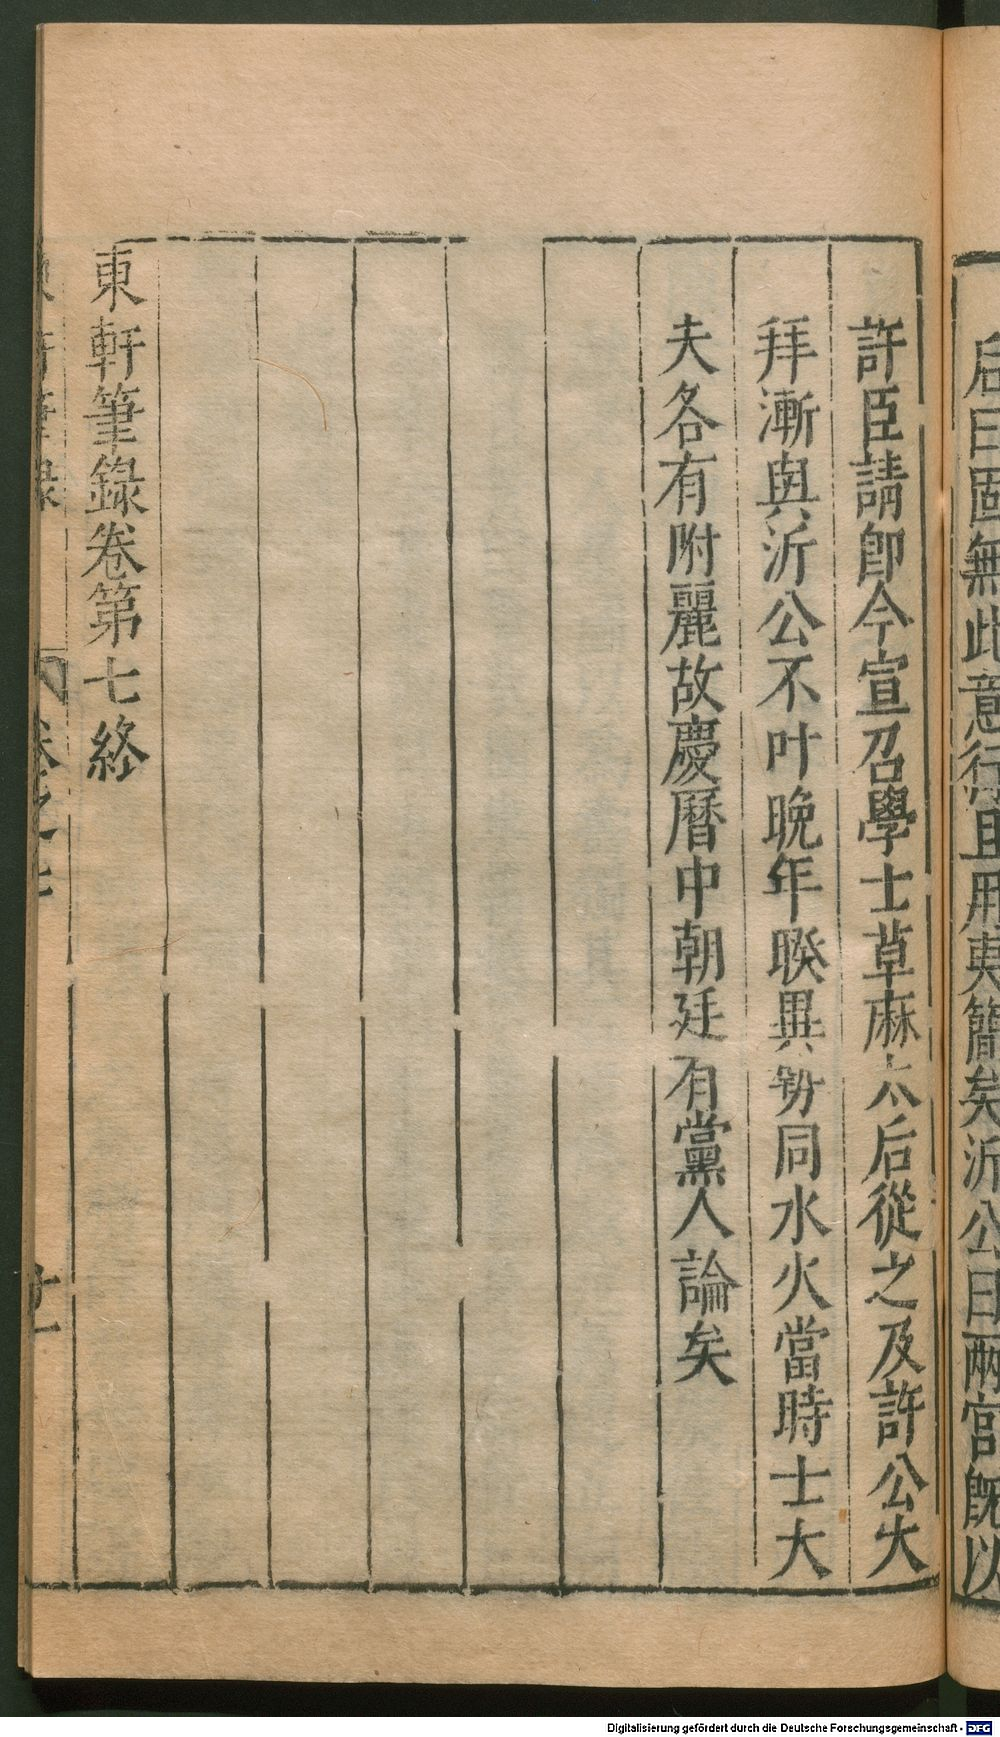 后曰固無此意行且用夷簡矣沂公曰兩宮旣以
許臣請卽今宣召學士草麻太后從之及許公大
拜漸與沂公不叶晚年睽異勢同水火當時士大
夫各有附麗故慶曆中朝廷有黨人論矣
東軒筆錄卷第七終
東軒筆錄 卷之七 廿一
Digitalisierung gefördert durch die Deutsche Forschungsgemeinschaft - DFG